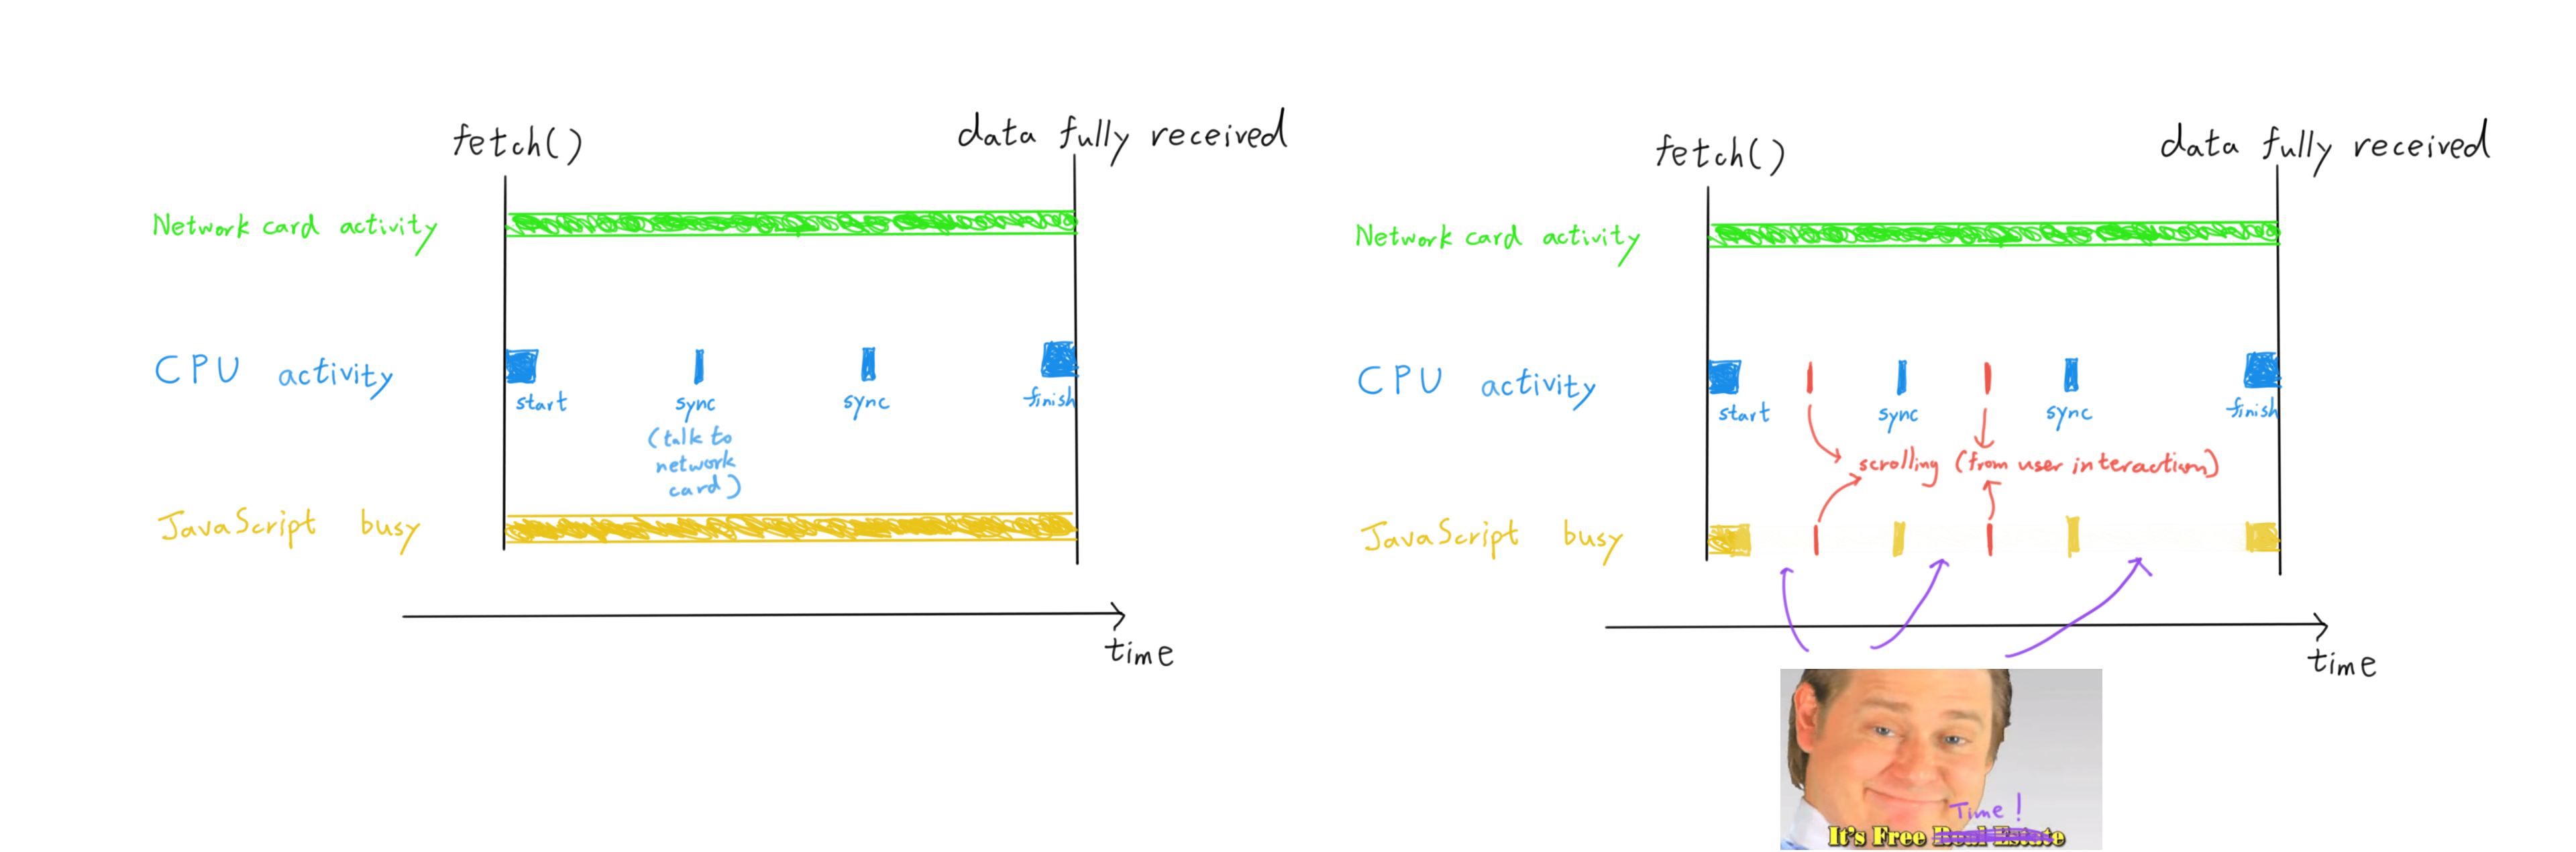 fetch()
data fully received
Network card activity
CPU activity
start
sync
(talk to
network
card)
sync
finish
JavaScript busy
time
fetch()
data fully received
Network card activity
CPU activity
start
sync
sync
finish
scrolling (from user interaction)
JavaScript busy
time
Time!
It's Free Real Estate